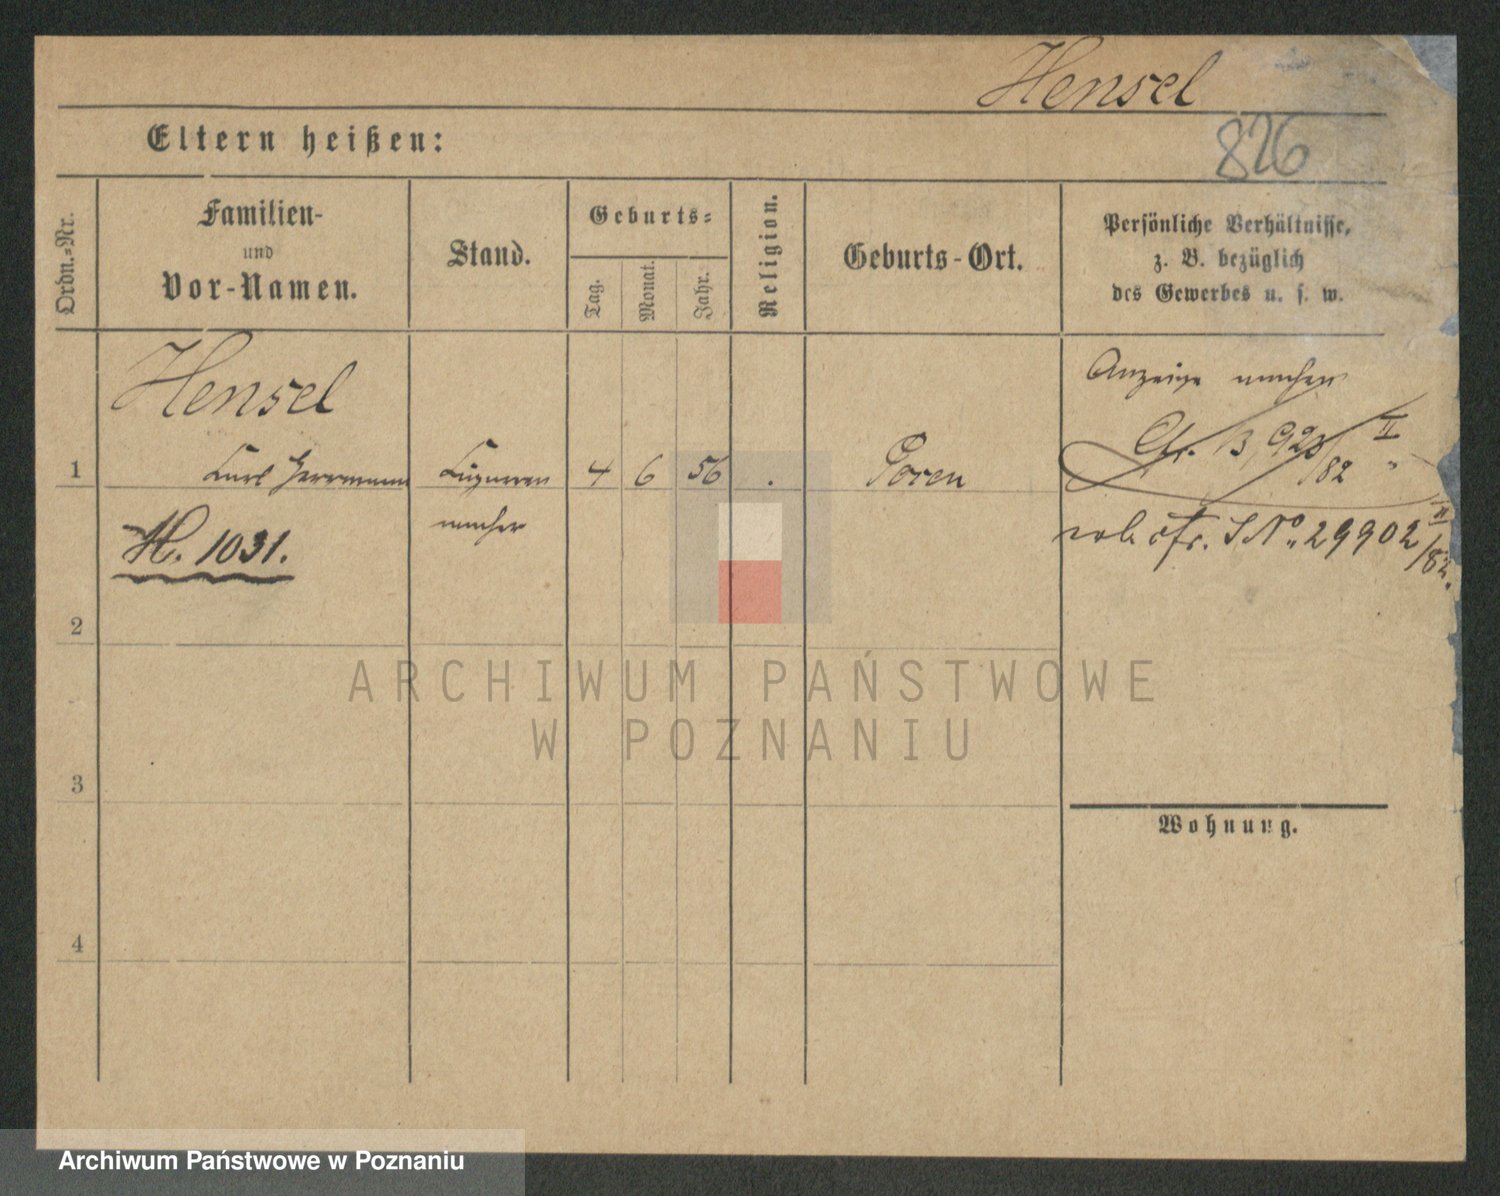 Hensel
826
Eltern heißen:
Ordn.-Nr.
Familien-
und
Vor-Namen.
Stand.
Geburts-
Tag.
Monat.
Jahr.
Religion.
Geburts-Ort.
Persönliche Verhältnisse,
z. B. bezüglich
des Gewerbes u. s. w.
Hensel
1 Carl Herrmann Cigarren 4 6 56 . Posen
macher
M. 1031.
Anzeige machen
Cfr. B. 923 II
/82
cfr. J No. 29902 II
/82.
2
3
4
Wohnung.
ARCHIWUM PAŃSTWOWE
W POZNANIU
Archiwum Państwowe w Poznaniu